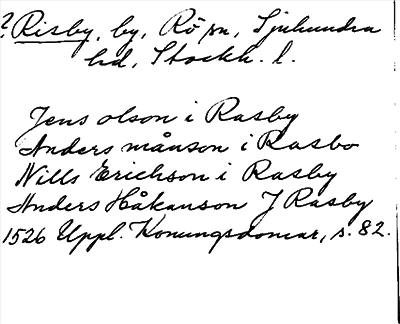 ? Risby, by, Rö sn, Sjuhundra
hd, Stockh. l.
Jens olson i Rasby
Anders månson i Rasbo
Nills Erichson i Rasby
Anders Håkanson J Rasby
1526 Uppl. Konungsdomar, s. 82.